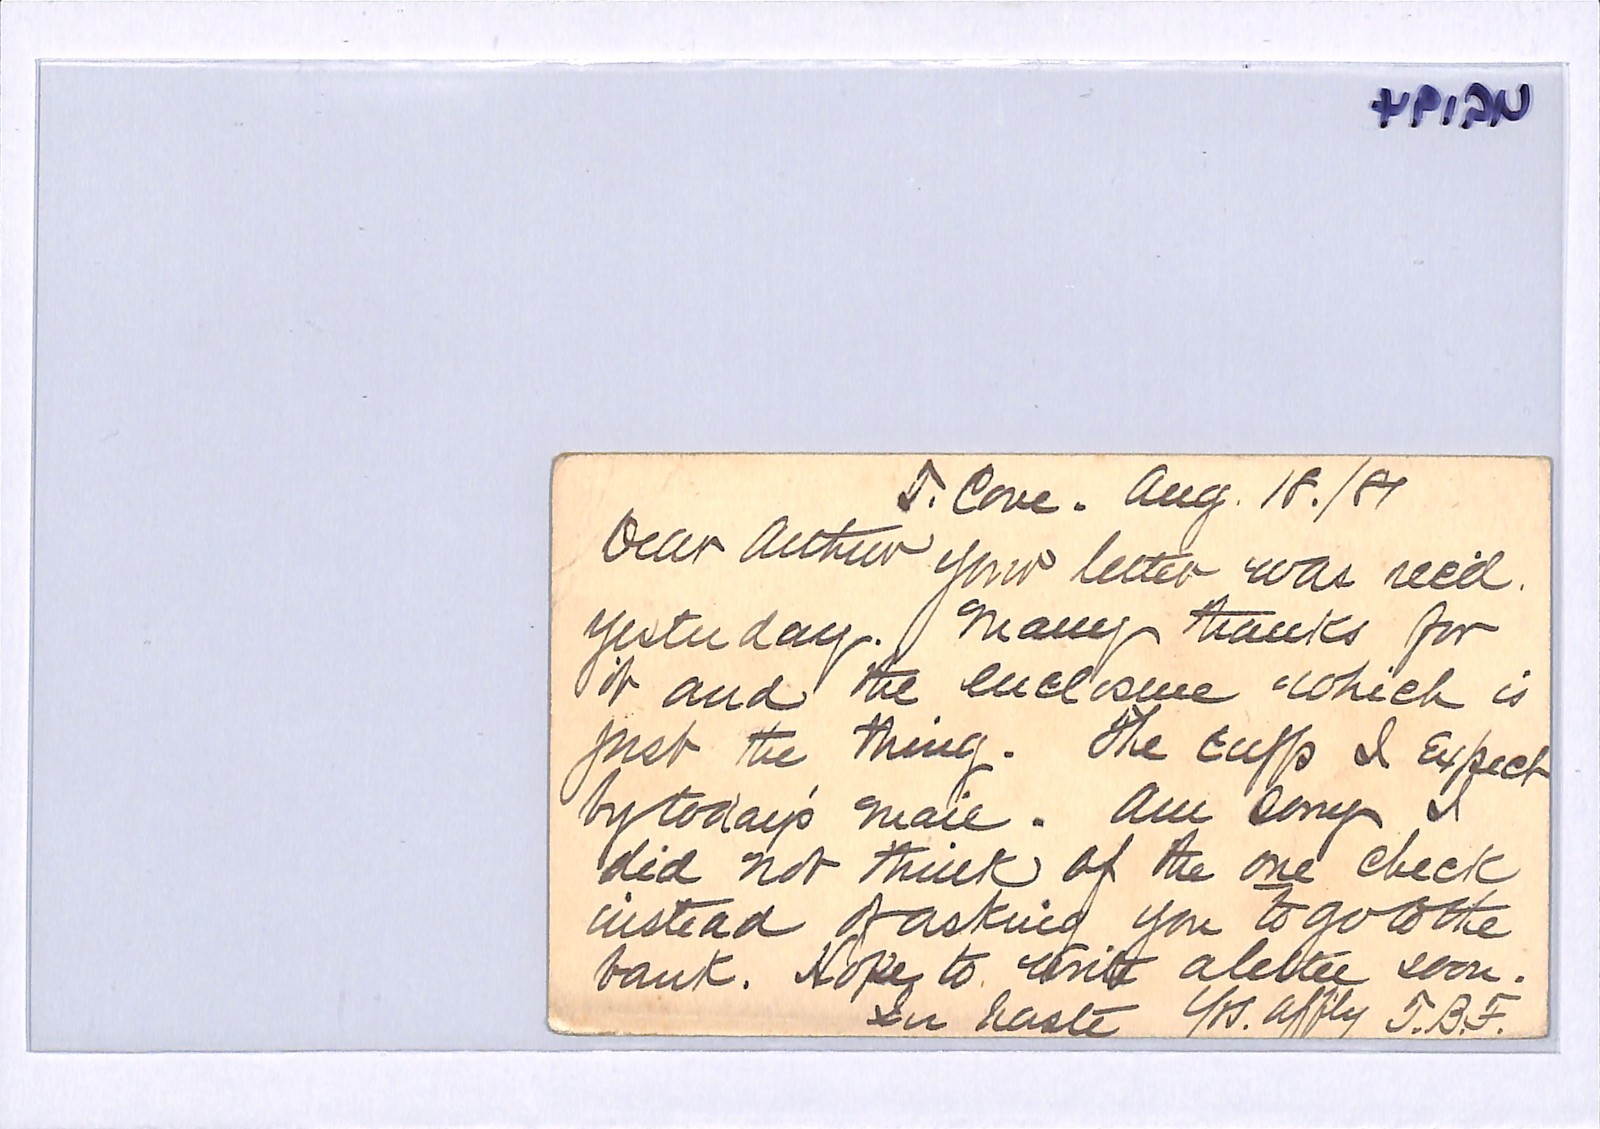 T. Cove. Aug. 18./84
Dear Arthur Your letter was rec'd.
yesterday. Many thanks for
it and the enclosure which is
just the thing. The cuffs I expect
by today's mail. Am sorry I
did not think of the one check
instead of asking you to go to the
bank. Hope to write a letter soon.
In haste Yrs. affly T.B.F.